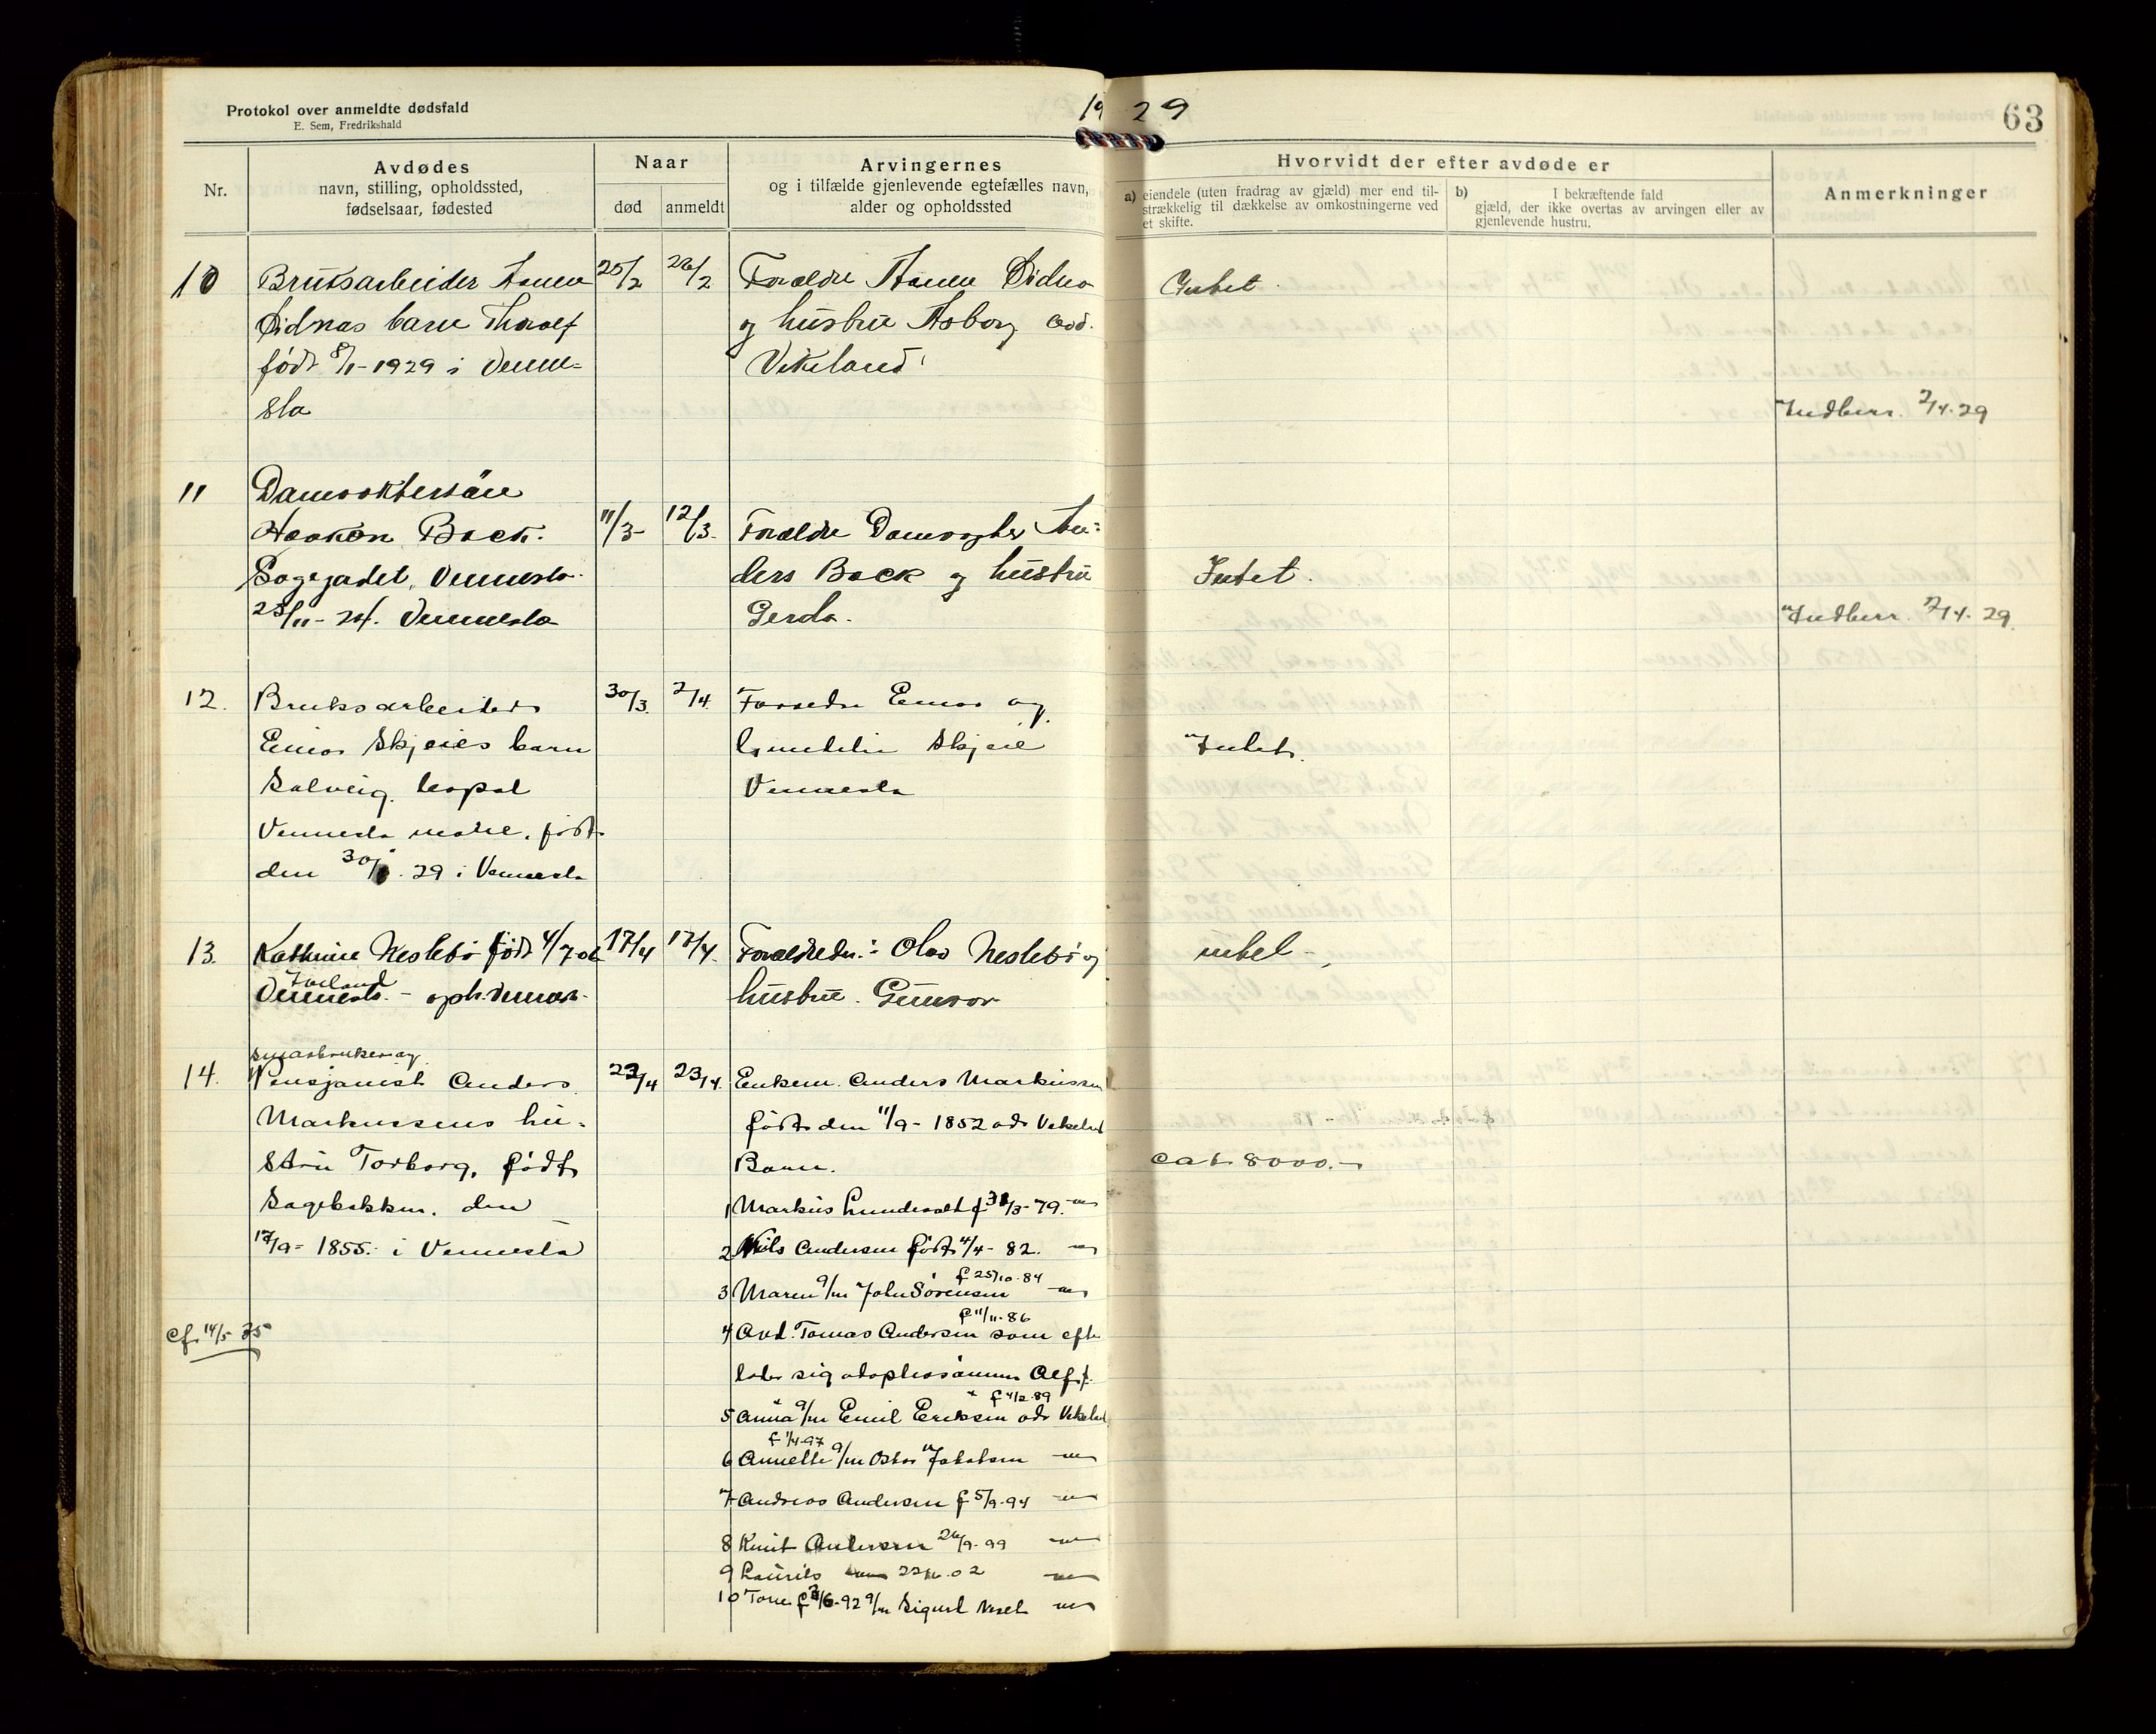 Protokol over anmeldte dødsfald
E. Sem, Fredrikshald
1929
63
Nr.
Avdødes
navn, stilling, opholdssted,
fødselsaar, fødested
Naar
død
anmeldt
Arvingernes
og i tilfælde gjenlevende egtefælles navn,
alder og opholdssted
Hvorvidt der efter avdøde er
a) eiendele (uten fradrag av gjæld) mer end til-
strækkelig til dækkelse av omkostningerne ved
et skifte.
b) I bekræftende fald
gjæld, der ikke overtas av arvingen eller av
gjenlevende hustru.
Anmerkninger
10
Bruksarbeider
barn Thorolf
født 8/1-1929 i Venne-
sla
25/2
26/2
Forældre
og hustru Aaborg
Vikeland
Intet
Indberr. 2/4.29
11
Damvoktersön
Haakon Back.
Vennesla.
25/11-24. Vennesla
11/3-
12/3.
Forældre Damvogter An-
ders Back og hustru
Gerda.
Intet.
Indberr. 2/4.29.
12.
Bruksarbeider
Einar Skjeies barn
Solveig.
Vennesla
den 29 i Vennesla
30/3.
2/4.
Einar og
Skjeie
Vennesla
Intet.
13.
Kathrine Neslebö født 4/7-06
Iveland
Vennesla. - oph. Vennesla.
17/4
17/4.
Forældrene: Olav Neslebö og
hustru. Gunvor
intet -
14.
Smaabruker og
Pensjonist Anders
Markussens hu-
stru Torborg, født
Sagebakken. den
17/9- 1855. i Vennesla
cf. 14/5-35
22/4
23/4.
Enkem. Anders Markussen
født den 11/9-1852 ads Vikeland
Barn.
1 Markus f 31/3-79. -"-
2 Nils Andersen født 4/4-82. -"-
f 25/10-84
3 Maren g/m John Sörensen -"-
f 11/11-86
4 Avd. Tomas Andersen som efter
lader sig adoptivsönnen Alf
f 4/2-89
5 Anna g/m Emil Eriksen ads Vikeland
f 1/4-97
6 Annette g/m Oskar Jakobsen -"-
7 Andreas Andersen f 5/9-94 -"-
8 Knut Andersen 26/9-99 -"-
9 Laurits 02 -"-
10 92 g/m Sigurd -"-
ca kr. 8000.-